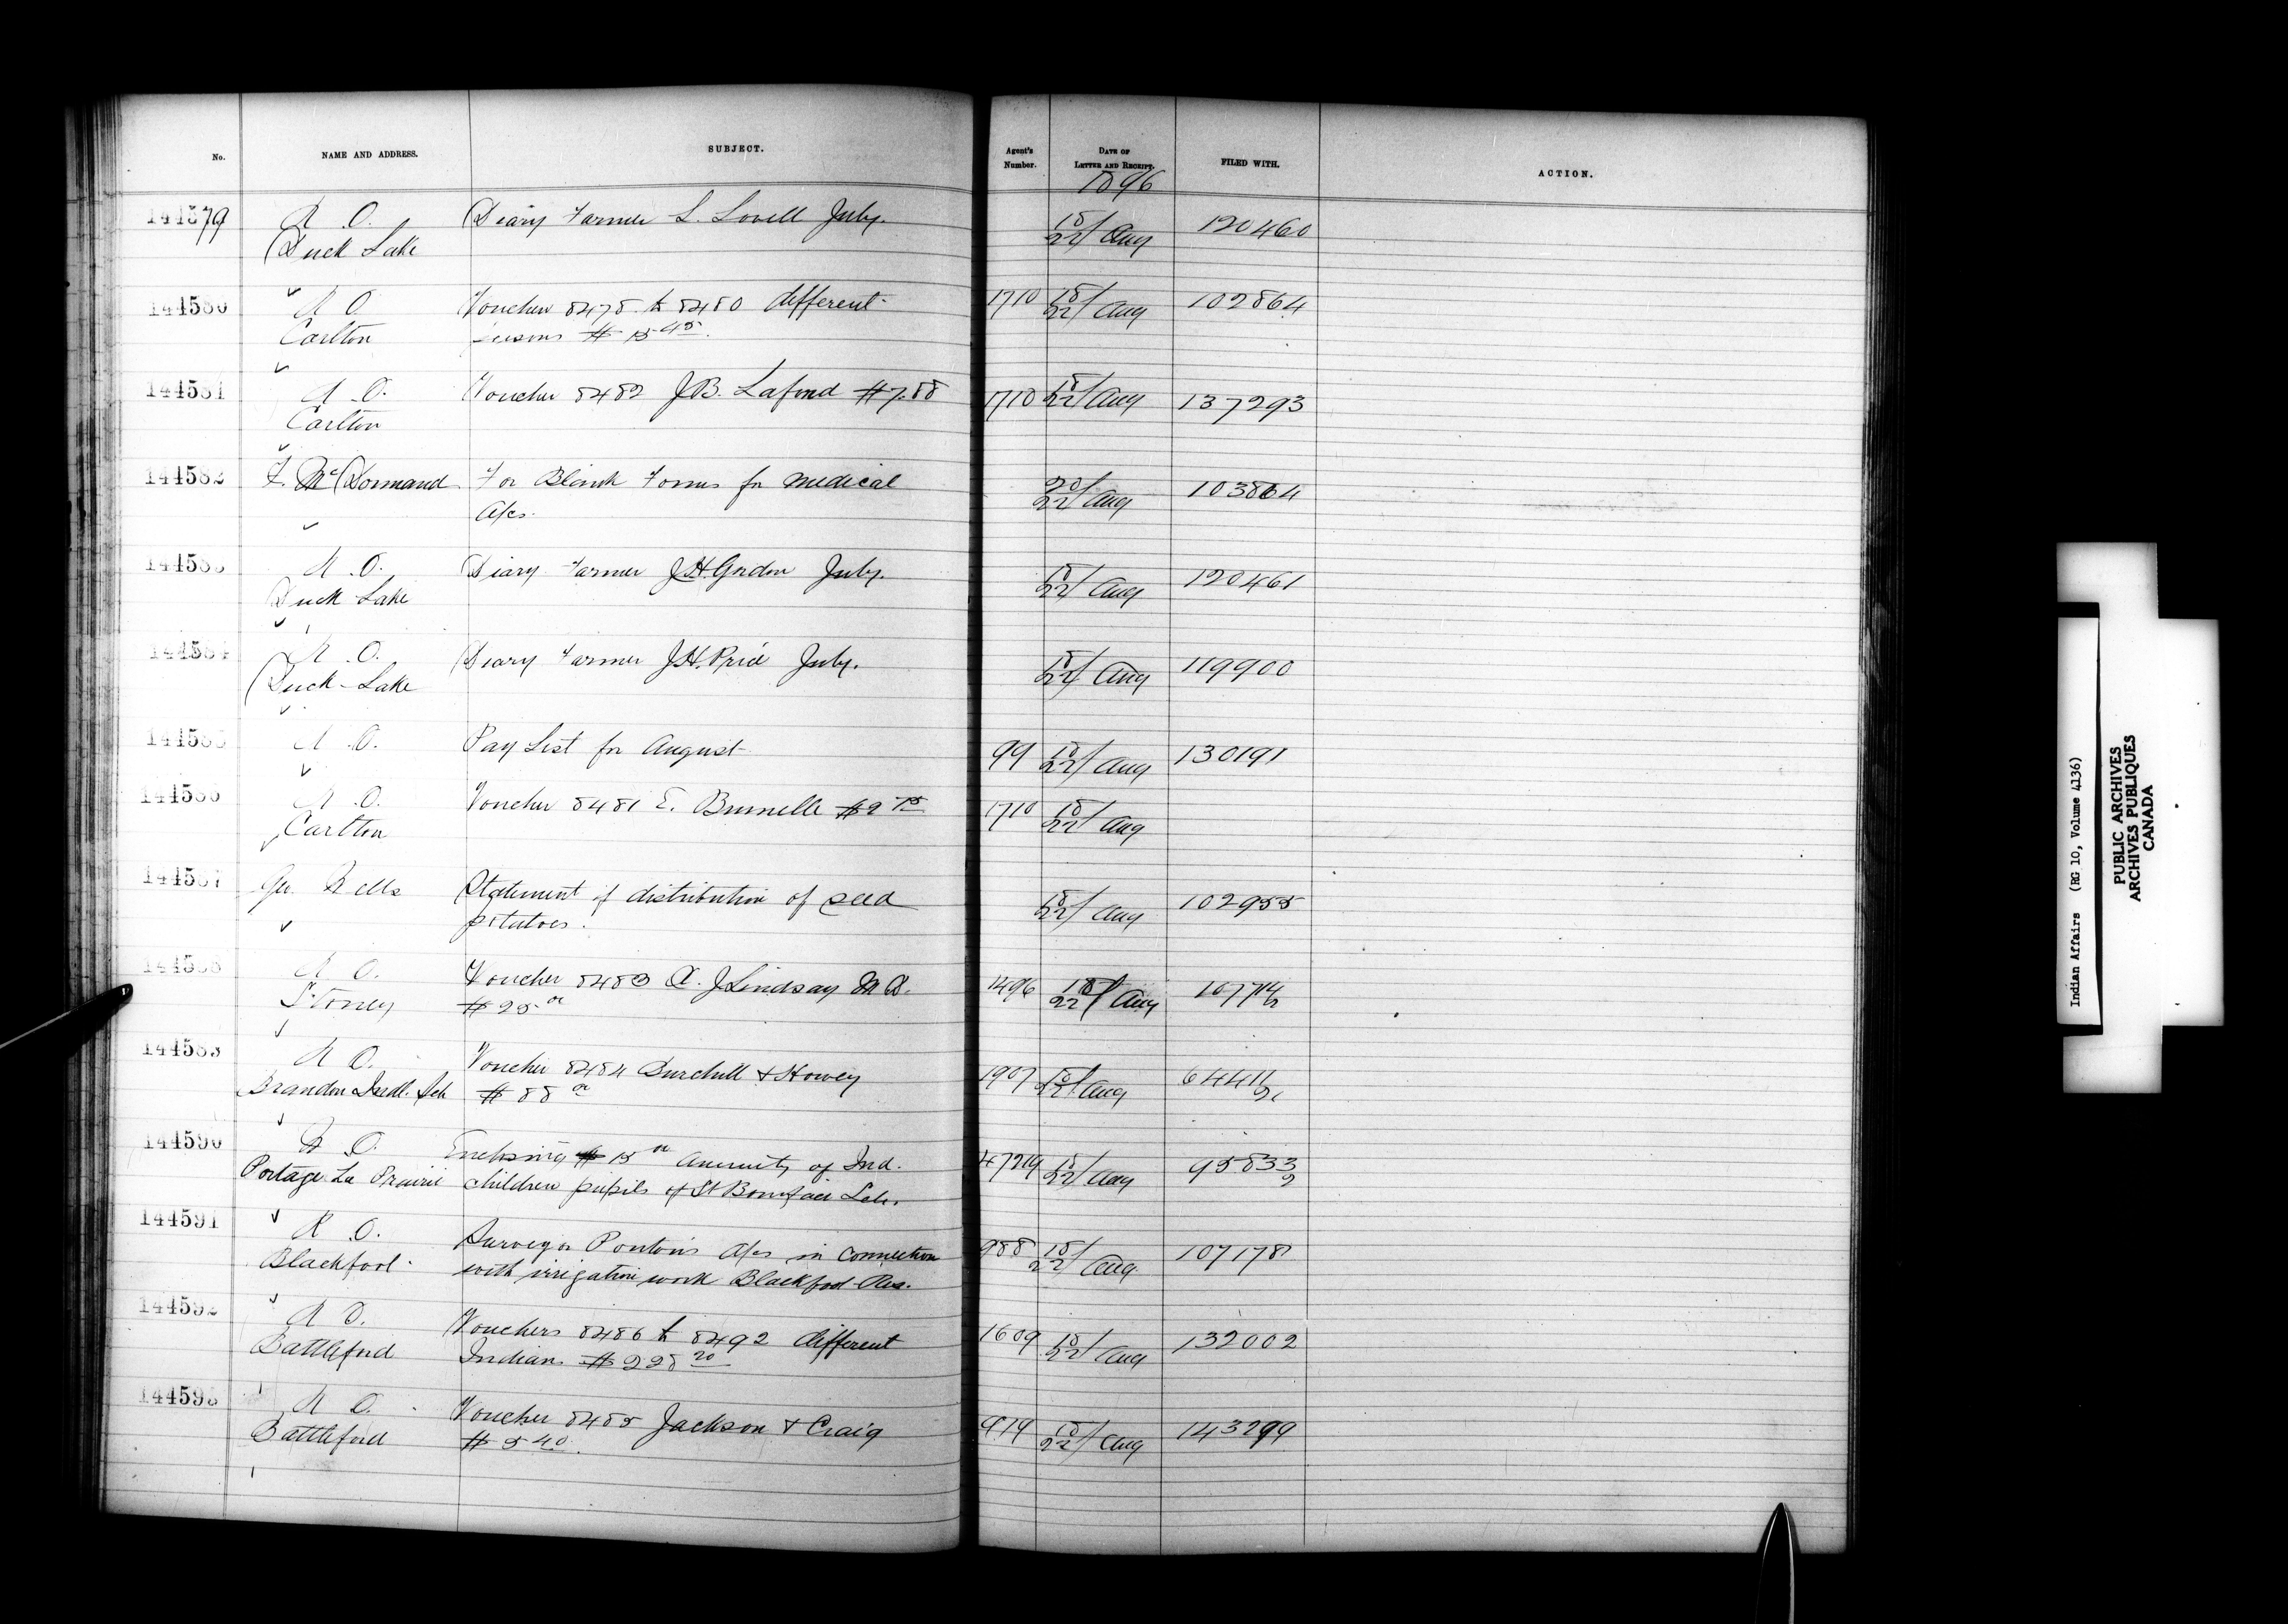 No.
NAME AND ADDRESS.
SUBJECT.
Agent's Number.
DATE OF LETTER AND RECEIPT.
FILED WITH.
ACTION.
1896
144579 R O. Diary Farmer L. Lovell July. 18/22 Aug 120460
Duck Lake
144580 R O Voucher 8478 to 8480 different 1710 18/22 Aug 102864
Carlton persons $15 45
144581 R O. Voucher 8482 J.B. Lafond $7.88 1710 18/22 Aug 137293
Carlton
144582 F. McDormand For Blank Forms for medical 20/22 Aug 103864
A/cs.
144583 R. O. Diary Farmer J.H. Gordon July. 18/22 Aug 120461
Duck Lake
144584 R. O. Diary Farmer J.H. Price July. 18/22 Aug 119900
Duck Lake
144585 R. O. Pay List for August 99 18/22 Aug 130191
144586 R. O. Voucher 8481 E. Brunelle $2 75 1710 18/22 Aug
Carlton
144587 Statement of distribution of seed 18/22 Aug 102955
potatoes.
144588 R O. Voucher 8483 J Lindsay M D. 1496 18/22 Aug
Stoney $25 00
144589 R O. Voucher 8484 Burchill & Howey 1907 18/22 Aug 64411/2
Brandon Indl. Sch $88 00
144590 R O. Enclosing $15 00 annuity of Ind. 18/22 Aug 95833/2
Portage La Prairie children pupils of St Boniface Sch.
144591 R O. Surveyor Ponton's A/cs in connection 988 18/22 Aug. 107178
Blackfoot with irrigation work Blackfoot Res.
144592 R O. Vouchers 8486 to 8492 different 1609 18/22 Aug 132002
Battleford Indians $228 20
144593 R O. Voucher 8485 Jackson & Craig 18/22 Aug 143299
Battleford $5 40.
Indian Affairs (RG 10, Volume 4136)
PUBLIC ARCHIVES
ARCHIVES PUBLIQUES
CANADA